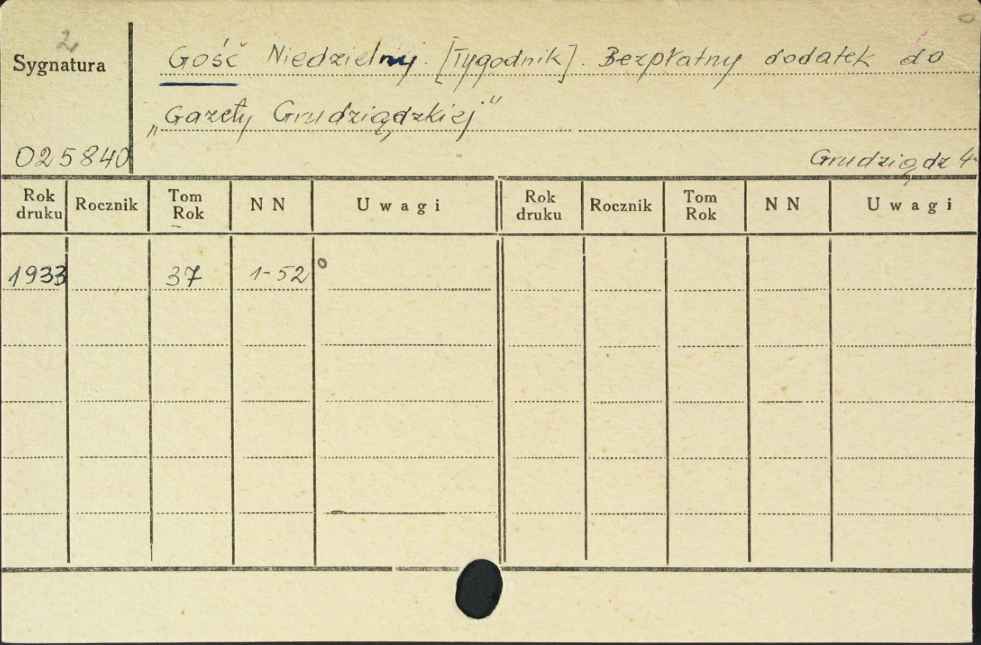 2
Sygnatura
Gość Niedzielny. [Tygodnik]. Bezpłatny dodatek do
„Gazety Grudziądzkiej"
025840
Grudziądz 4°
Rok druku Rocznik Tom Rok N N Uwagi Rok druku Rocznik Tom Rok N N Uwagi
1933 37 1-52°